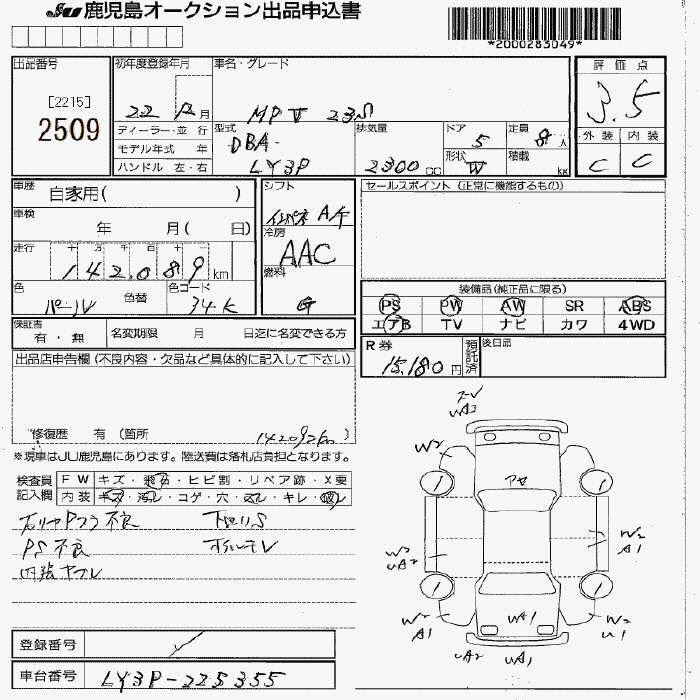 JU 鹿児島オークション出品申込書
*2000283049*
出品番号
[2215]
2509
初年度登録年月
22年12月
車名・グレード
MPV 23S
ディーラー・並行
モデル年式 年
ハンドル 左・右
型式
DBA-
LY3P
排気量
2300 CC
ドア
5
形状
W
定員
8人
積載
kg
評価点
3.5
外装 内装
C C
車歴
自家用( )
車検
年 月( 日)
走行
十 万 千 百 十 一
142089 km
色
パール
色替
色コード
34K
シフト
インパネ A/T
冷房
AAC
燃料
G
セールスポイント (正常に機能するもの)
装備品(純正品に限る)
PS PW AW SR ABS
エアB TV ナビ カワ 4WD
保証書
有・無
名変期限 月 日迄に名変できる方
R券
15,180円
預託済
後日品
出品店申告欄(不良内容・欠品など具体的に記入して下さい)
修復歴 有 (箇所 )
142092km
※現車はJU鹿児島にあります。陸送費は落札店負担となります。
検査員
記入欄
FW キズ・飛石・ヒビ割・リペア跡・X要
内装 キズ・汚レ・コゲ・穴・スレ・キレ・破レ
右リヤPスラ不良 下廻リS
PS不良
内張ヤブレ
登録番号
車台番号
LY3P-225355
UA3
W2
アセ
W2
UA2
W2
A1
W2
A1
UA1
W2
U1
UA2
UA1